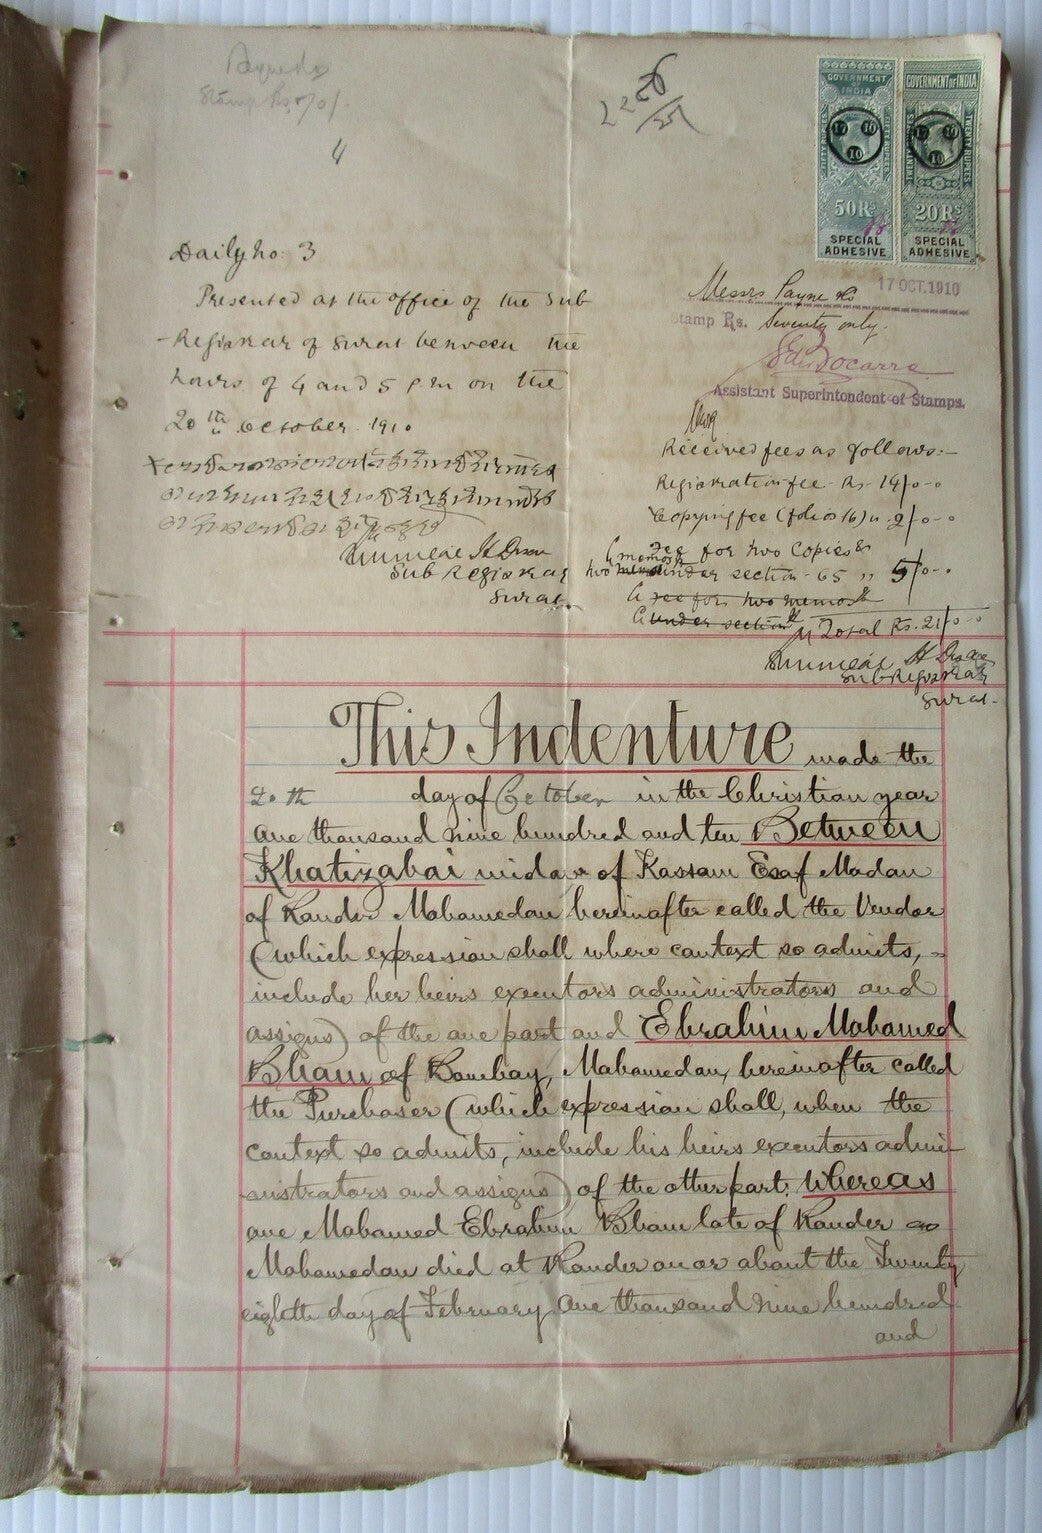 4
Daily No: 3
Presented at the office of the Sub
Registrar of Surat between the
hours of 4 and 5 P.M on the
20th October 1910
Sub Registrar
Surat.
GOVERNMENT
OF
INDIA
FIFTY RUPEES
50 Rs
SPECIAL
ADHESIVE
GOVERNMENT OF INDIA
TWENTY RUPEES
20 Rs
SPECIAL
ADHESIVE
17 OCT. 1910
Messrs Payne & Co
Stamp Rs. Seventy only.
Assistant Superintendent of Stamps.
Received fees as follows:-
Registration fee - Rs. 14/0-0
Copying fee (folios 16) " 2/0-0
Fee for two copies &
two memos under section - 65 " 5/0-0
fee for two memos
under section
Total Rs. 21/0-0
Sub Registrar
Surat.
This Indenture made the
20th day of October in the Christian year
one thousand nine hundred and ten Between
Khatizabai widow of Kassam Esaf Madan
of Rander Mahomedan hereinafter called the Vendor
(which expression shall where context so admits,
include her heirs executors administrators and
assigns) of the one part and Ebrahim Mahomed
Bham of Bombay, Mahomedan, hereinafter called
the Purchaser (which expression shall, when the
context so admits, include his heirs executors admini-
nistrators and assigns) of the other part. Whereas
one Mahomed Ebrahim Bham late of Rander
Mahomedan died at Rander on or about the Twenty
eighth day of February One thousand nine hundred
and